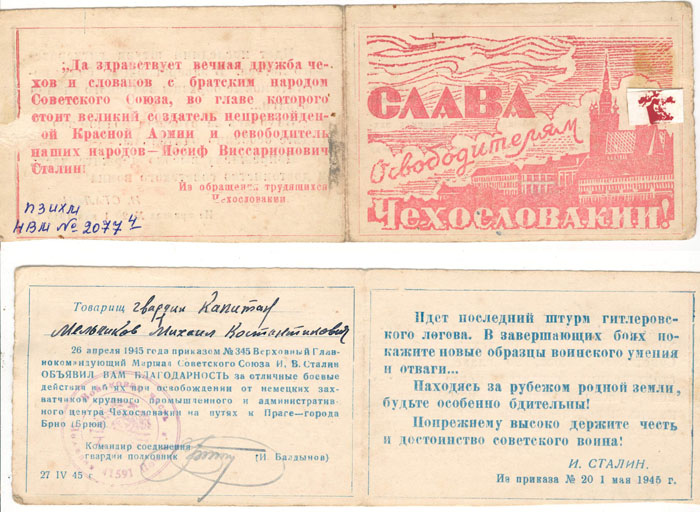 „Да здравствует вечная дружба че-
хов и словаков с братским народом
Советского Союза, во главе которого
стоит великий создатель непревзойден-
ной Красной Армии и освободитель
наших народов—Иосиф Виссарионович
Сталин!
Из обращения трудящихся
Чехословакии.
ПЗИХМ
НВМ № 2077 4
СЛАВА
Освободителям
Чехословакии!
Товарищ гвардии Капитан
Мельников Михаил Костантинович
26 апреля 1945 года приказом № 345 Верховный Глав-
нокомандующий Маршал Советского Союза И. В. Сталин
ОБЪЯВИЛ ВАМ БЛАГОДАРНОСТЬ за отличные боевые
действия при освобождении от немецких зах-
ватчиков крупного промышленного и административ-
ного центра Чехословакии на путях к Праге—города
Брно (Брюн)
Командир соединения
гвардии полковник (И. Балдынов)
27 IV 45 г
Идет последний штурм гитлеров-
ского логова. В завершающих боях по-
кажите новые образцы воинского умения
и отваги...
Находясь за рубежом родной земли,
будьте особенно бдительны!
Попрежнему высоко держите честь
и достоинство советского воина!
И. СТАЛИН.
Из приказа № 20 1 мая 1945 г.